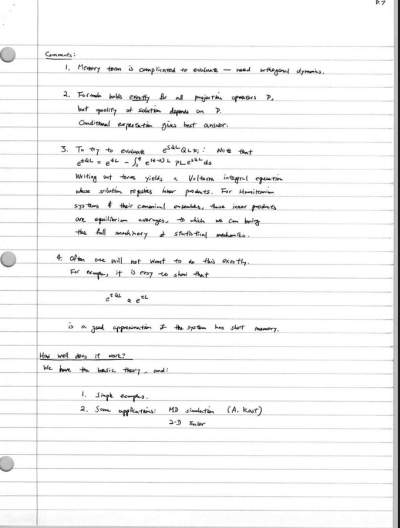 P. 7
Comments:
1. Memory term is complicated to evaluate — need orthogonal dynamics.
2. Formula holds exactly for all projection operators P,
but quality of solution depends on P.
Conditional expectation gives best answer.
3. To try to evaluate e^{sQL} QL x_i : Note that
e^{tQL} = e^{tL} - ∫_0^t e^{(t-s)L} PL e^{sQL} ds
Writing out terms yields a Volterra integral equation
whose solution requires inner products. For Hamiltonian
systems & their canonical ensembles, these inner products
are equilibrium averages, to which we can bring
the full machinery of statistical mechanics.
4. Often one will not want to do this exactly.
For example, it is easy to show that
e^{tQL} ≈ e^{tL}
is a good approximation if the system has short memory.
How well does it work?
We have the basic theory, and:
1. Simple examples.
2. Some applications: MD simulation (A. Kast)
2-D Euler